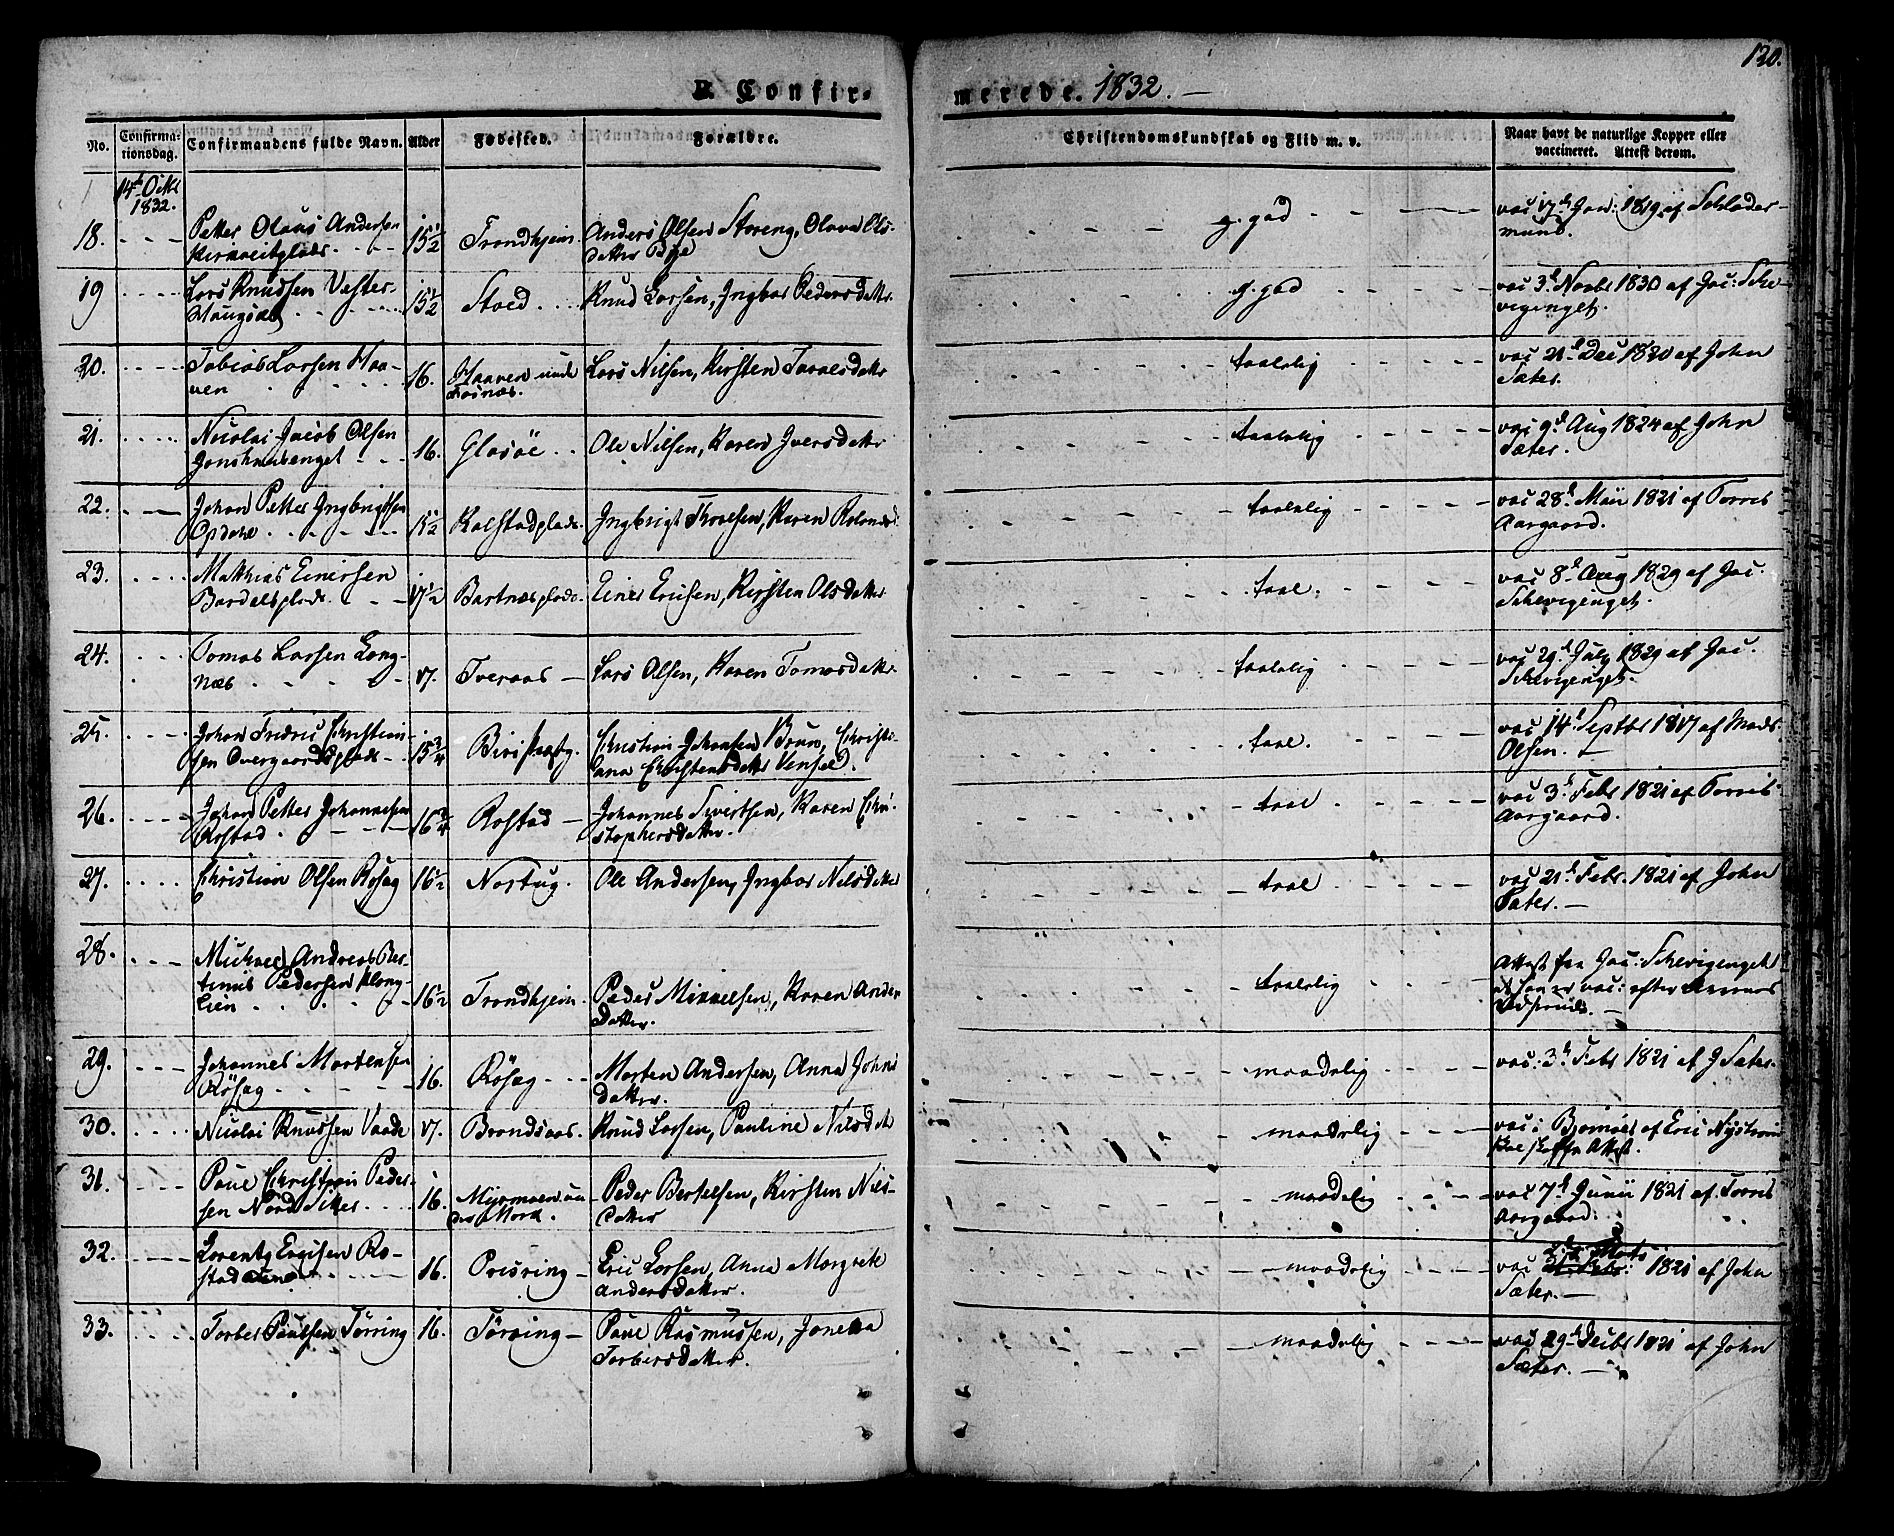 130.
D. Confir-
merede. 1832. —
No.
Confirma-
tionsdag.
Confirmandens fulde Navn.
Alder
Fødested.
Forældre.
Christendomskundskab og Flid m. v.
Naar havt de naturlige Kopper eller
vaccineret. Attest derom.
14de Octbr
1832.
18.
Petter Olaus Andersen
15½
Trondhjem
Anders Olsen Storeng, Olava Ols-
datter Bye
g. god
vac 17de Jan: 1819 af
19
Lars Knudsen Vester-
15½
Stoed
Knud Larsen, Ingbor Pedersdatter
g. god
vac 3de Novbr 1830 af Jac: Ske-
vigenget.
20.
Tobias Larsen Haa-
ven
16.
Haaven unde
Fosnæs.
Lars Nilsen, Kirsten
taalelig
vac 21de Dec 1820 af John
Sæter.
21.
Nicolai Jacob Olsen
16.
Gløsøe
Ole Nilsen, Karen Iversdatter
taalelig
vac 9de Aug 1824 af John
Sæter.
22.
Johan Petter Ingbrigtsen
Opdahl
15½
Kalstadplads
Ingbrigt Thoresen, Karen
taalelig
vac 28de Mai 1821 af Torris
Aargaard.
23.
Mathias Einersen
Bardalsplads
17½
Bartnæsplads
Einer Ericsen, Kirsten Olsdatter
taal.
vac 8de Aug 1829 af Jac:
Skevigenget.
24.
Tomas Larsen Lang-
næs
17.
Tveraas —
Lars Olsen, Karen Tomasdatter
taalelig
vac 29de July 1829 af Jac:
Skevigenget.
25.
Johan Fridric Christian-
sen Overgaardsplads
15¾
Christian Johansen Brun, Christi-
ana Christensdatter
taal.
vac 14de Septbr 1817 af Mads
Olsen. —
26.
Johan Petter Johannesen
Rostad
16¾
Rostad —
Johannes Sivertsen, Karen Chri-
stophersdatter.
taal
vac 3de Febr 1821 af Torris
Aargaard.
27.
Christian Olsen Røsag
16½
Norlug.
Ole Andersen, Ingbor Nilsdatter
taal
vac 21de Febr. 1821 af John
Sæter. —
28.
Michael Andreas Ber-
tinus Pedersen Klong-
lien
16½
Trondhjem
Peder Mikkelsen, Karen Anders
datter.
taalelig
Attest fra Jac: Skevigenget
at han er vac: efter
29.
Johannes Mortensen
Røsag
16.
Røsag
Morten Andersen, Anna Johns
datter.
maadelig
vac: 3de Febr 1821 af J Sæter.
30.
Nicolai Knudsen Vaade
17.
Brandsaas
Knud Larsen, Pauline Nilsdatter
maadelig
vac: af Eric Nystrøm
31.
Paul Christian Peder-
sen Nord
16.
Myrmoen un-
der
Peder Bertelsen, Kirsten Nils-
datter
maadelig
vac 7de Junii 1821 af Torris
Aargaard.
32.
Lorents Ericsen Ro-
16.
Oxsring —
Eric Larsen, Anna Margrete
Andersdatter.
maadelig
vac 1821 af John
Sæter. —
33.
Torber Paulsen Tørring
16.
Tørring —
Paul Rasmussen,
Torbersdatter.
maadelig
vac 29de Decbr 1821 af John
Sæter. —